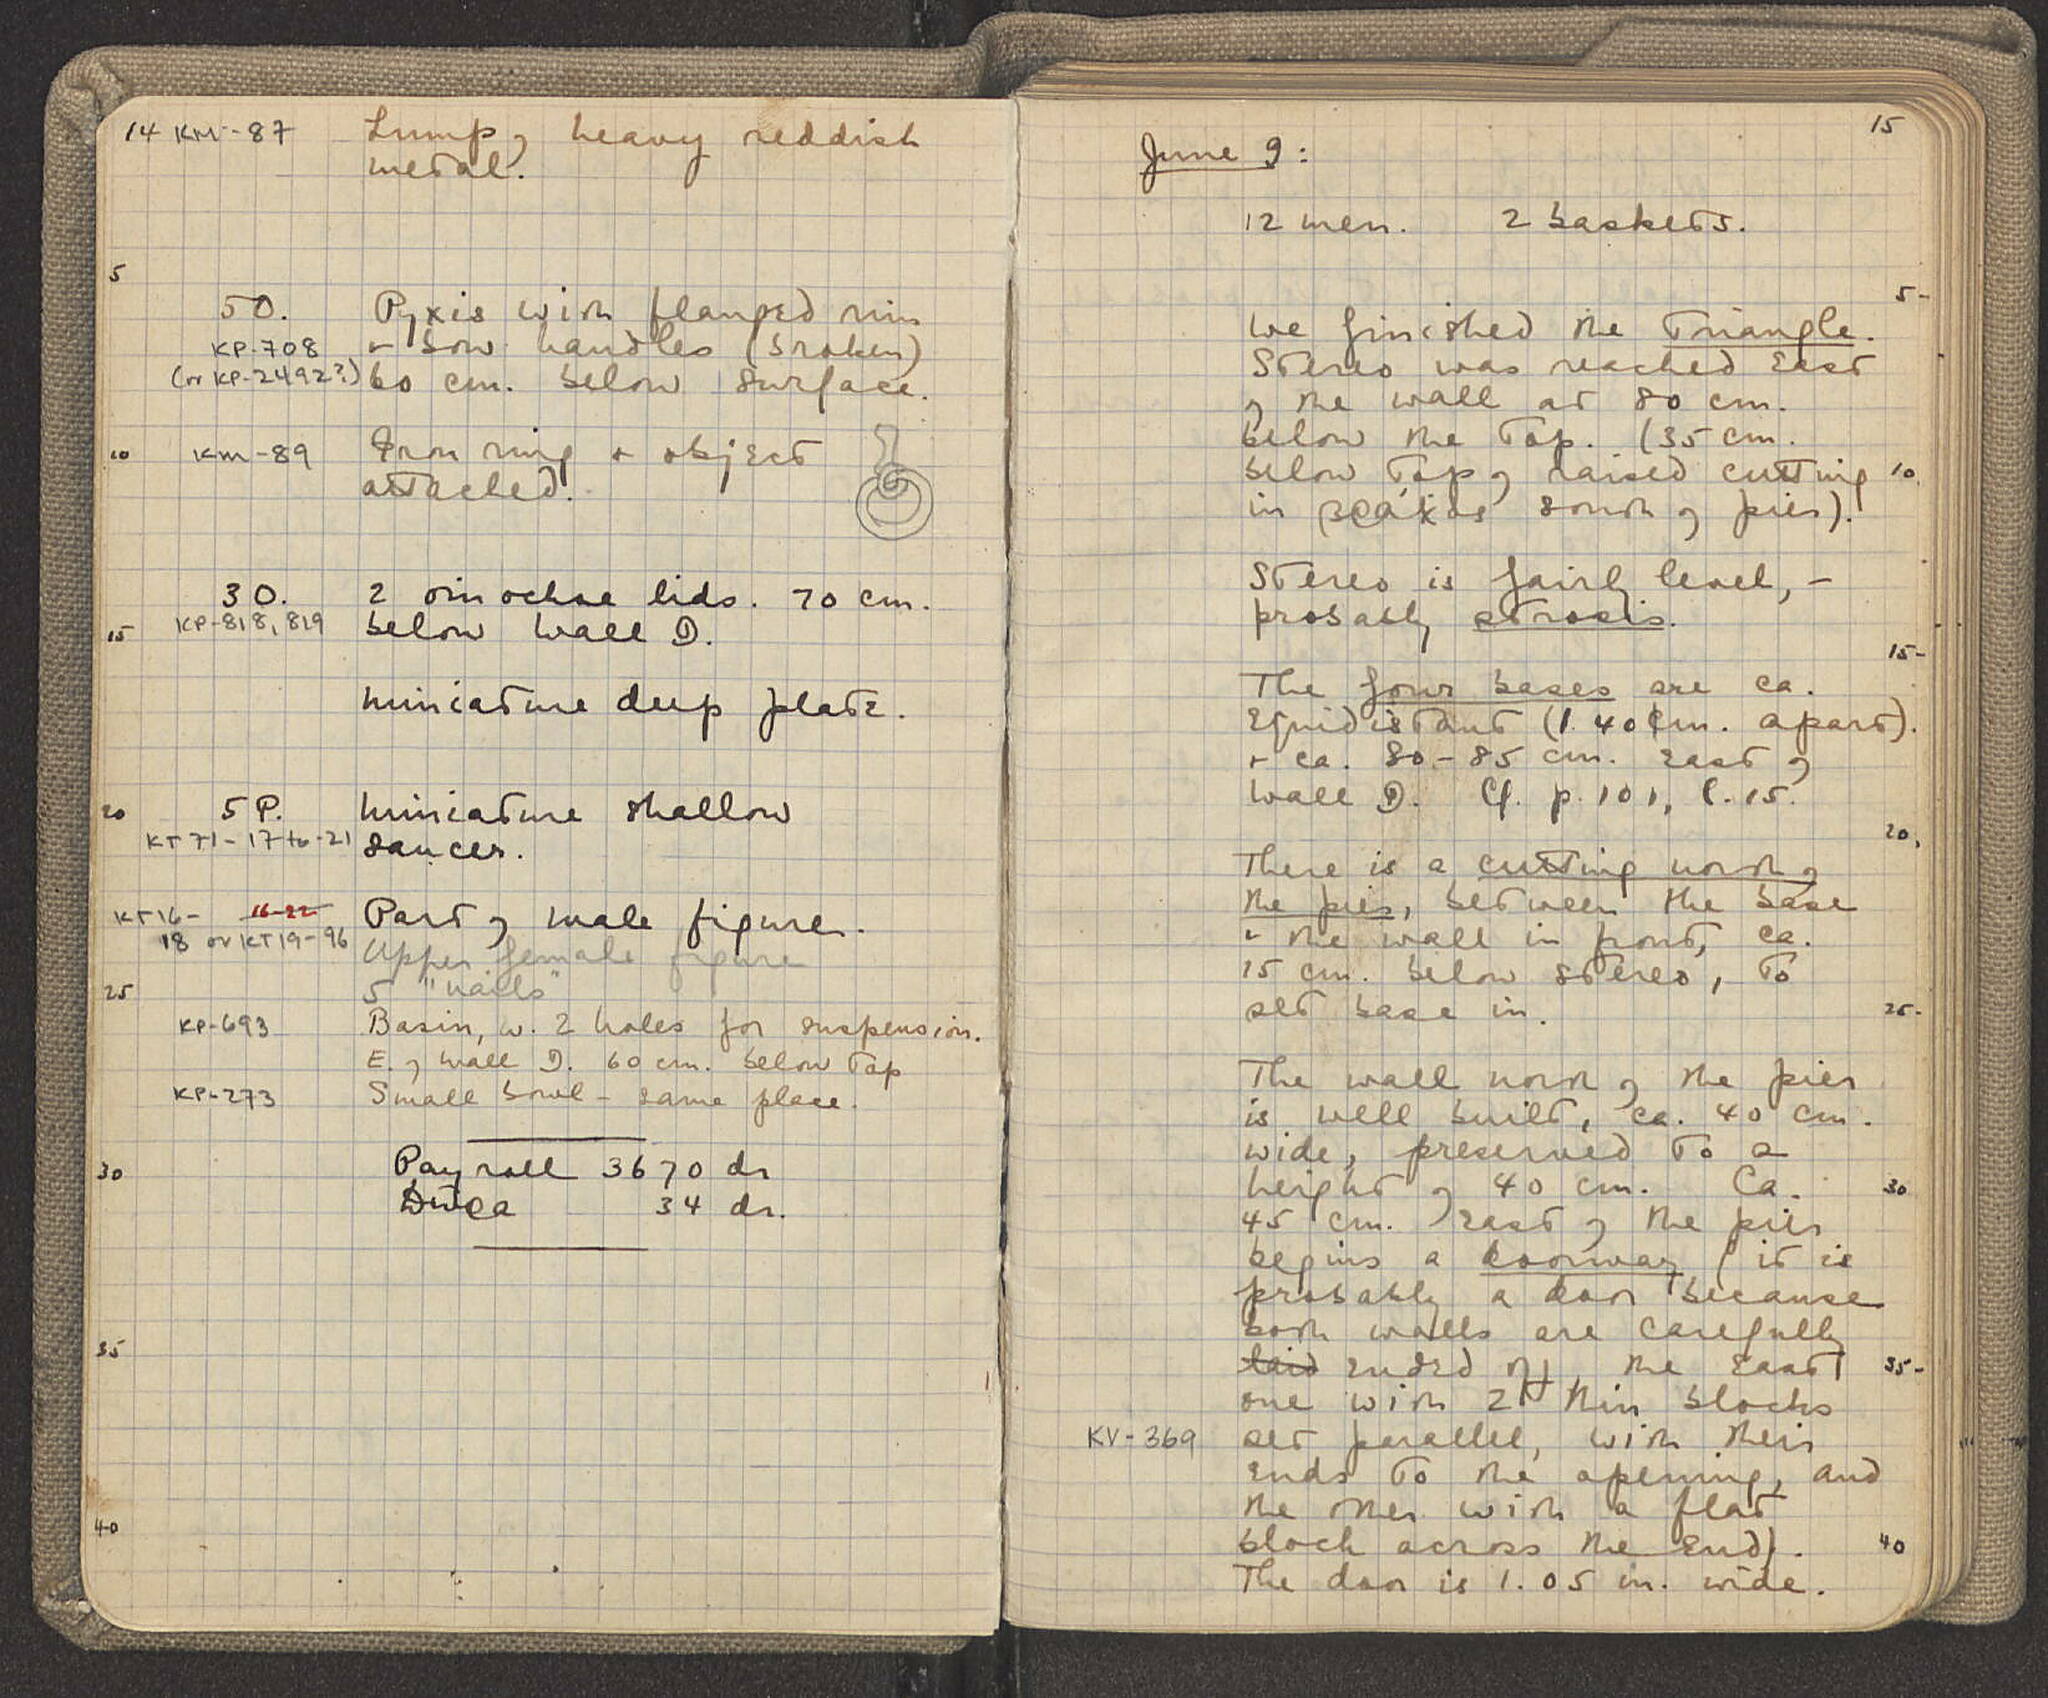 14 KM-87 Lump of heavy reddish
metal.
5
50. Pyxis with flanged rim
KP-708 + bow handles (broken)
(or KP-2492?) 60 cm. below surface.
10 KM-89 Iron ring + object
attached.
30. 2 oinochoe lids. 70 cm.
15 KP-818, 819 below Wall D.
Miniature deep plate.
20 5 P. Miniature shallow
KT 71-17 to -21 saucer.
KT16- 16-22 Part of male figure.
18 or KT19-96 Upper female figure
25 5 "nails"
KP-693 Basin, w. 2 holes for suspension.
E. of wall D. 60 cm. below top
KP-273 Small bowl - same place.
30 Payroll 3670 dr
34 dr.
35
40
15
June 9:
12 men. 2 baskets.
5-
We finished the Triangle.
Stereo was reached East
of the wall at 80 cm.
below the top. (35 cm.
below top of raised cutting 10
in βράχος south of pier).
Stereo is fairly level, -
probably strosis.
15-
The four bases are ca.
equidistant (1.40 cm. apart).
+ ca. 80-85 cm. East of
Wall D. Cf. p. 101, l. 15.
20
There is a cutting north of
the pier, between the base
+ the wall in front, ca.
15 cm. below stereo, to
set base in. 25-
The wall north of the pier
is well built, ca. 40 cm.
wide, preserved to a
height of 40 cm. Ca. 30
45 cm. East of the pier
begins a doorway (it is
probably a door because
both walls are carefully
laid ended off the East 35-
one with 2 thin blocks
KV-369 set parallel, with their
ends to the opening, and
the other with a flat
block across the end). 40
The door is 1.05 m. wide.